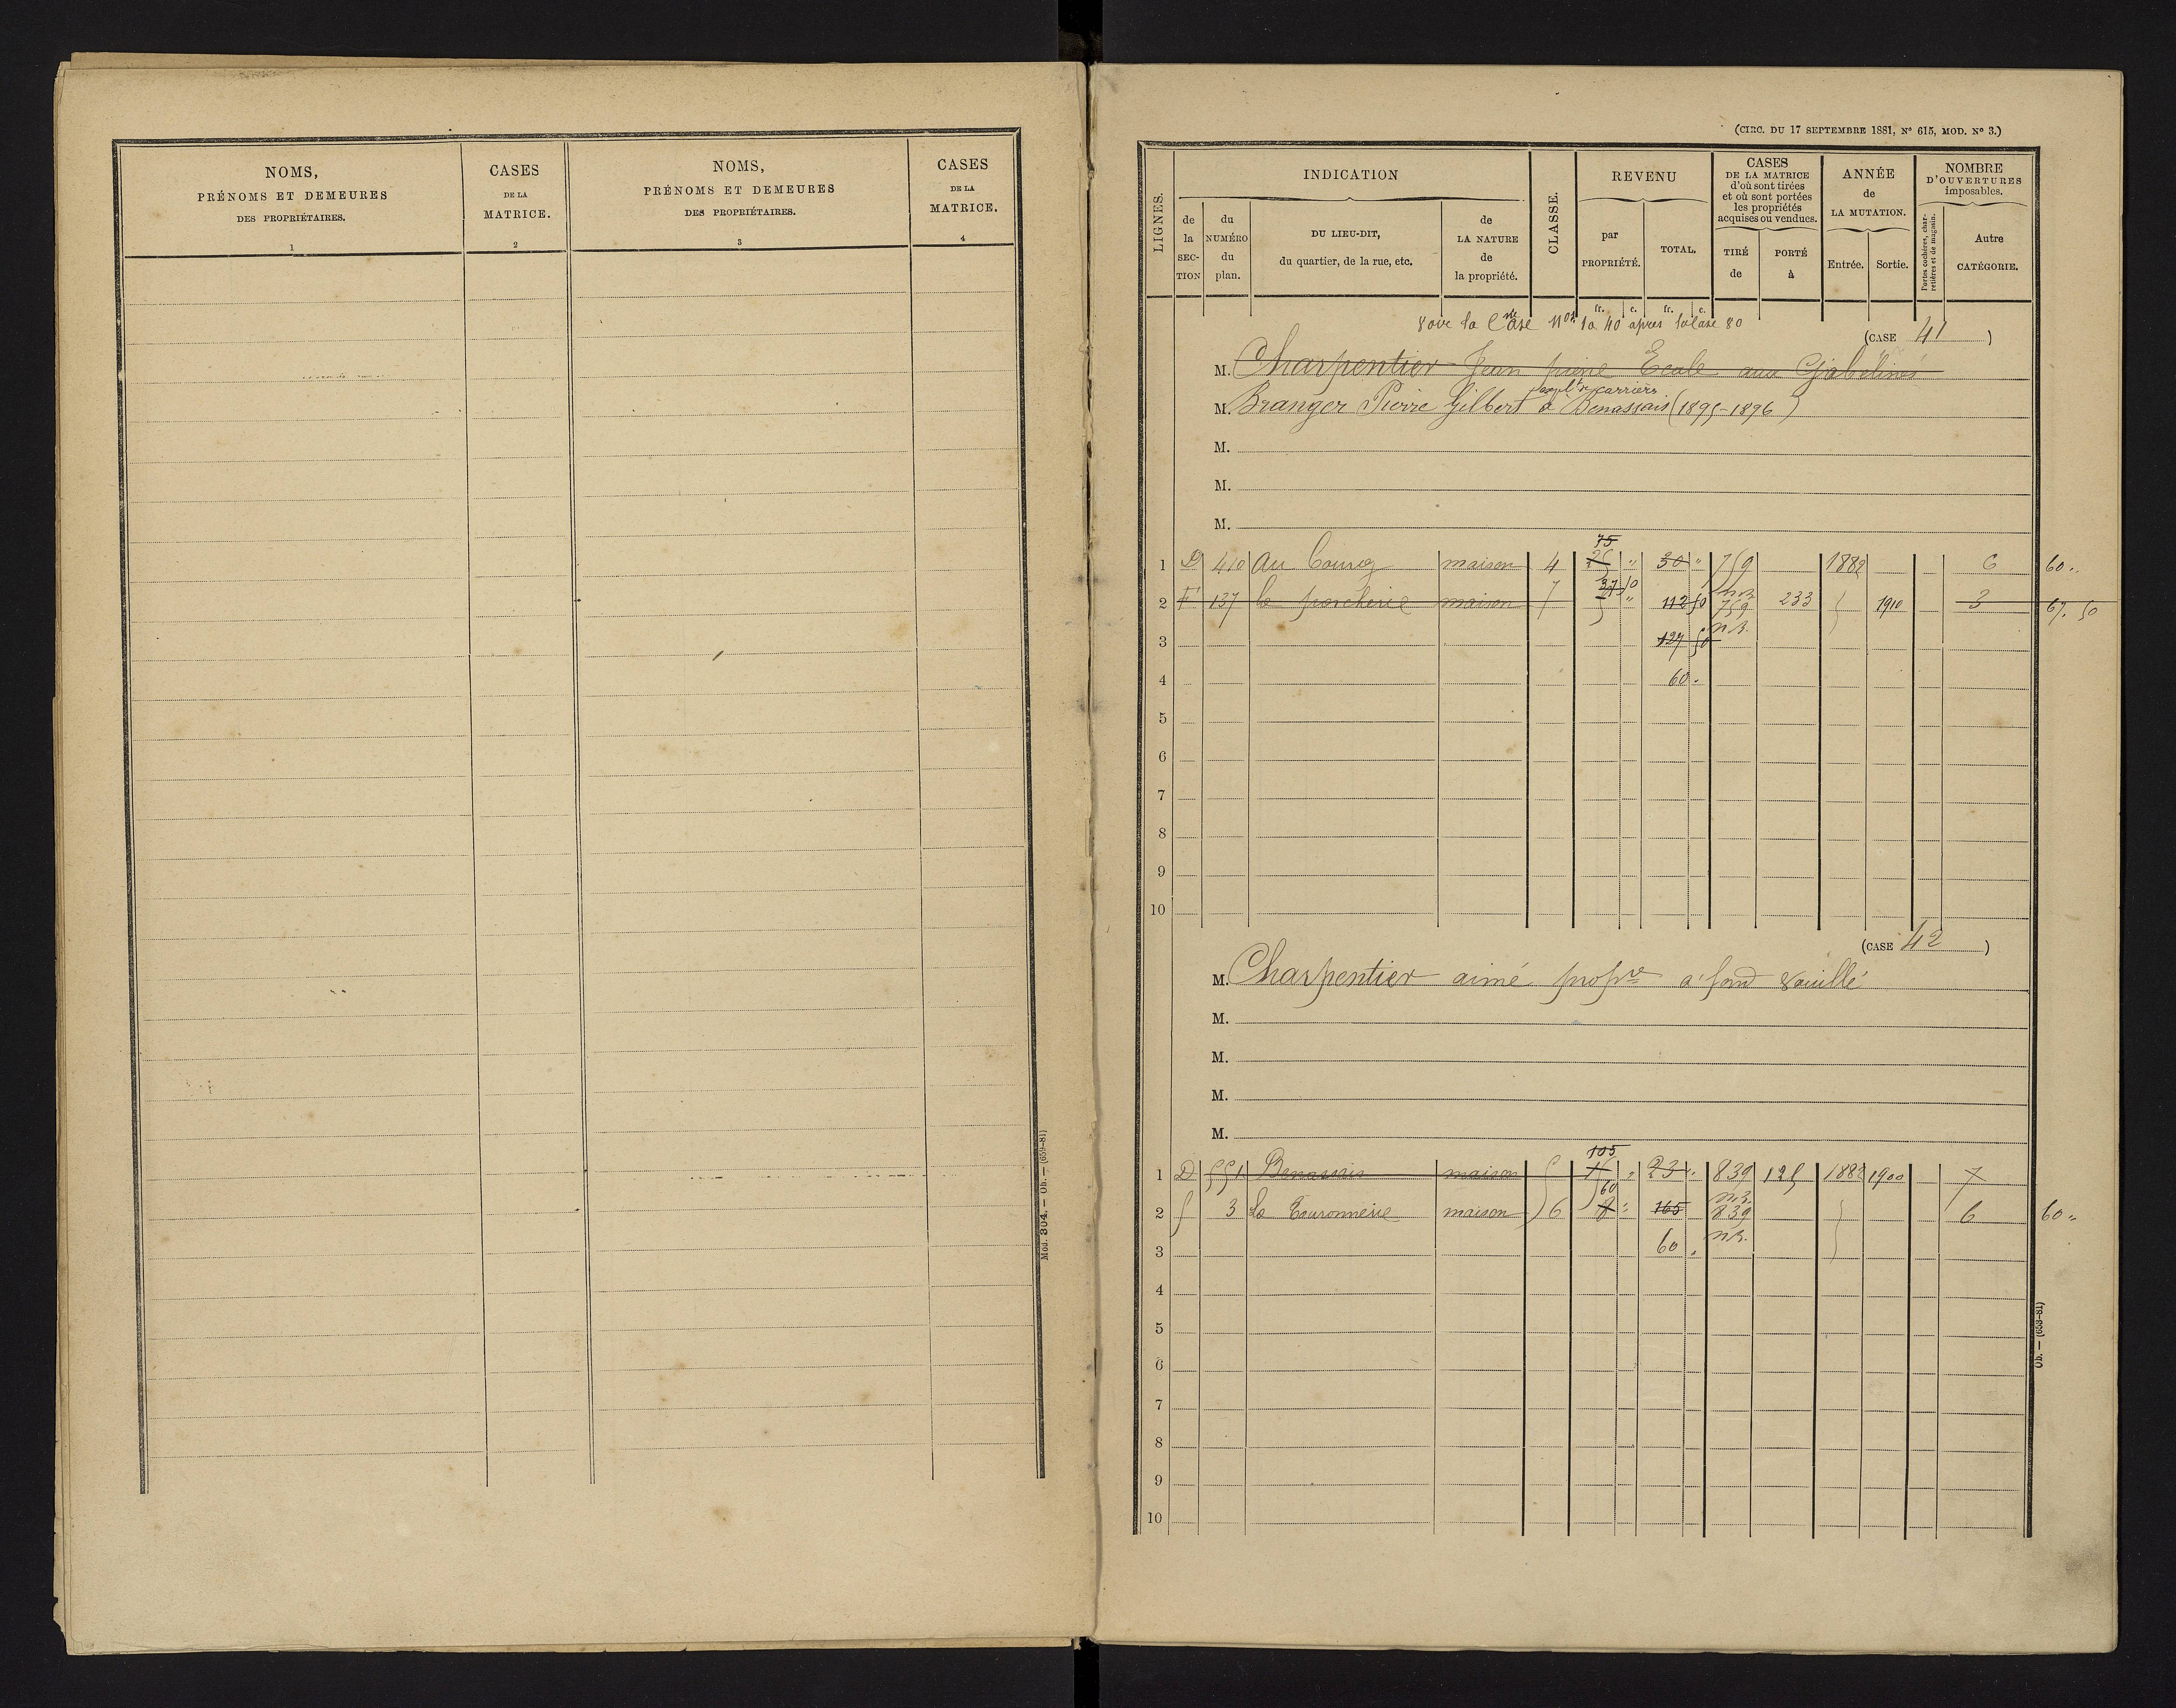 NOMS,
PRÉNOMS ET DEMEURES
DES PROPRIÉTAIRES.
1
CASES
DE LA
MATRICE.
2
NOMS,
PRÉNOMS ET DEMEURES
DES PROPRIÉTAIRES.
3
CASES
DE LA
MATRICE.
4
Mod. 304. — Ob. — (659-81)
(CIRC. DU 17 SEPTEMBRE 1881, N° 615, MOD. N° 3.)
LIGNES.
INDICATION
de la SECTION
du NUMÉRO du plan.
DU LIEU-DIT,
du quartier, de la rue, etc.
de LA NATURE de la propriété.
CLASSE.
REVENU
par PROPRIÉTÉ.
TOTAL.
CASES
DE LA MATRICE
d'où sont tirées
et où sont portées
les propriétés
acquises ou vendues.
TIRÉ de
PORTÉ à
ANNÉE
de
LA MUTATION.
Entrée.
Sortie.
NOMBRE
D'OUVERTURES
imposables.
Portes cochères, charretières et de magasin.
Autre
CATÉGORIE.
fr. c. fr. c.
Voir la Case Nos 1 à 40 après la Case 80
(CASE 41 )
M. Charpentier Jean pierre Ecale aux Gabelines
M. Branger Pierre Gilbert à Benassais (1895-1896)
carriers
M.
M.
M.
75
1 D 410 Au bourg maison 4 25 " 30 " 759 1882 6 60 "
37 50
2 F 137 la porcherie maison 7 112 50 759 233 1910 3 67. 50
n.r.
3 127 50
4 60 "
5
6
7
8
9
10
(CASE 42 )
M. Charpentier aimé propre à fond vouillé
M.
M.
M.
M.
105
1 D 551 Benassais maison 5 23 " 839 125 1882 1900 7
60
n.r.
2 3 La Touronnerie maison 6 8 " 165 839 6 60 "
3 60 " n.r.
4
5
6
7
8
9
10
Ob. — (653-81)